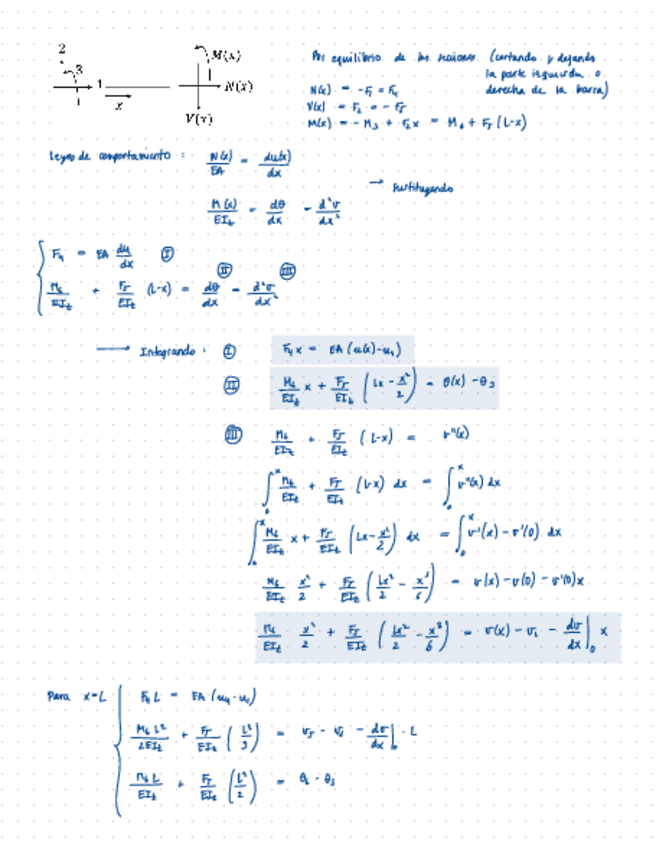 2
3
1
1
x
M(x)
N(x)
V(x)
Por equilibrio de las secciones (cortando y dejando
la parte izquierda o
derecha de la barra)
N(x) = -F₁ = F₄
V(x) = F₂ = - F₅
M(x) = - M₃ + F₂x = M₆ + F₅ (L-x)
Leyes de comportamiento : N(x)/EA = du(x)/dx
→ sustituyendo
M(x)/EIz = dθ/dx = d²v/dx²
F₄ = EA du/dx Ⓘ
M₆/EIz + F₅/EIz (L-x) = dθ/dx = d²v/dx² II III
Integrando : I F₄x = EA (u(x)-u₁)
II M₆/EIz x + F₅/EIz (Lx - x²/2) = θ(x) - θ₃
III M₆/EIz + F₅/EIz (L-x) = v''(x)
∫₀ˣ M₆/EIz + F₅/EIz (L-x) dx = ∫₀ˣ v''(x) dx
∫₀ˣ M₆/EIz x + F₅/EIz (Lx - x²/2) dx = ∫₀ˣ v'(x) - v'(0) dx
M₆/EIz x²/2 + F₅/EIz (Lx²/2 - x³/6) = v(x) - v(0) - v'(0)x
M₆/EIz x²/2 + F₅/EIz (Lx²/2 - x³/6) = v(x) - v₂ - dv/dx|₀ x
Para x=L F₄L = EA (u₄-u₁)
M₆L²/2EIz + F₅/EIz (L³/3) = v₅ - v₂ - dv/dx|₀ · L
M₆L/EIz + F₅/EIz (L²/2) = θ₆ - θ₃